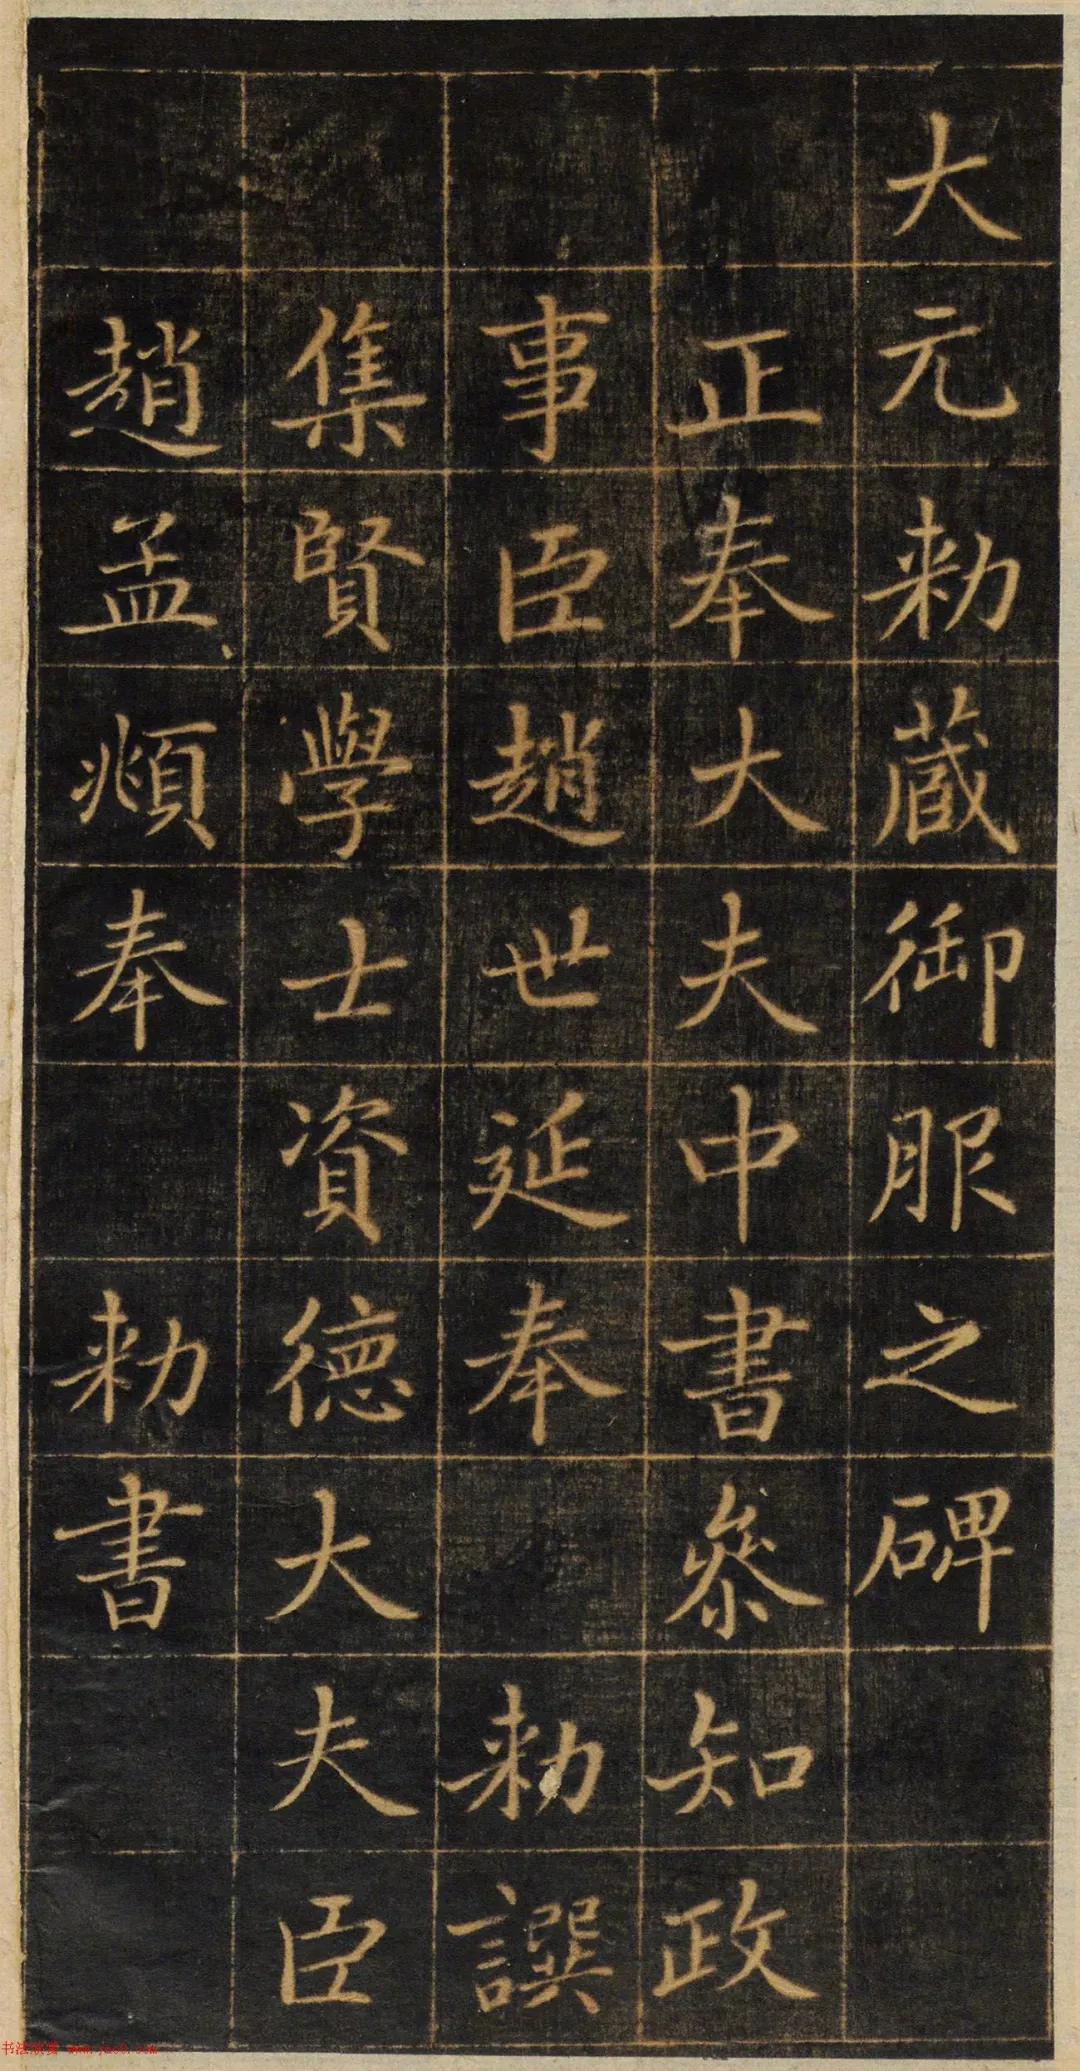 大元勑蔵御服之碑
正奉大夫中書叅知政
事臣趙世延奉勑譔
集賢學士資德大夫臣
趙孟頫奉勑書